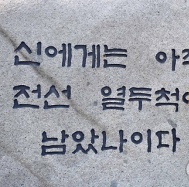 신에게는 아
전선 열두척
남았나이다